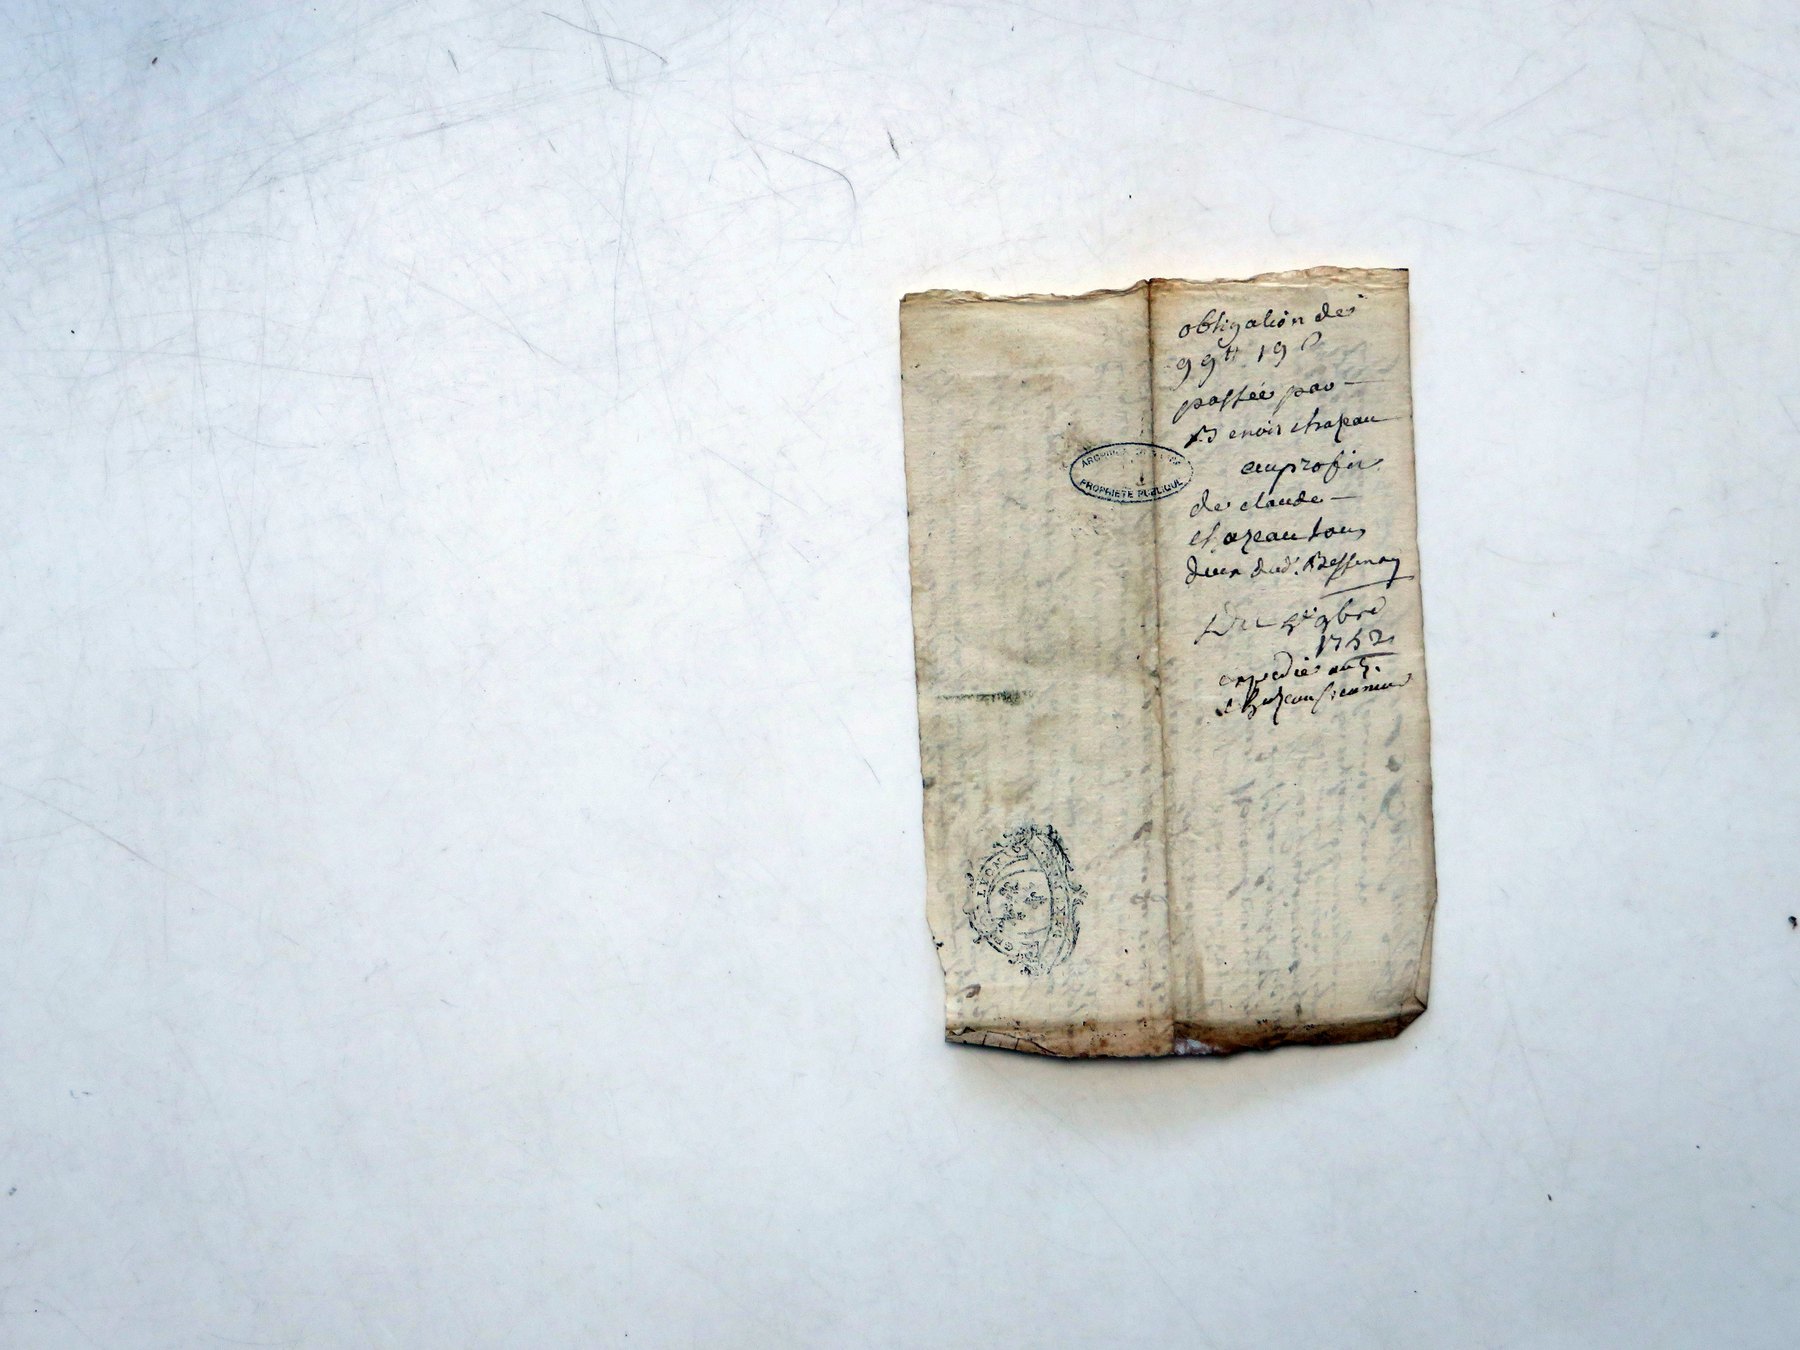 obligation de
99tt 19 s
passée par
Benoit chazeau
au profit
de claude
chazeau tous
deux dud. Bessenay
Du 9bre
1752
expedié aud.
chazeau
ARCHIVES
PROPRIETE PUBLIQUE
LYON